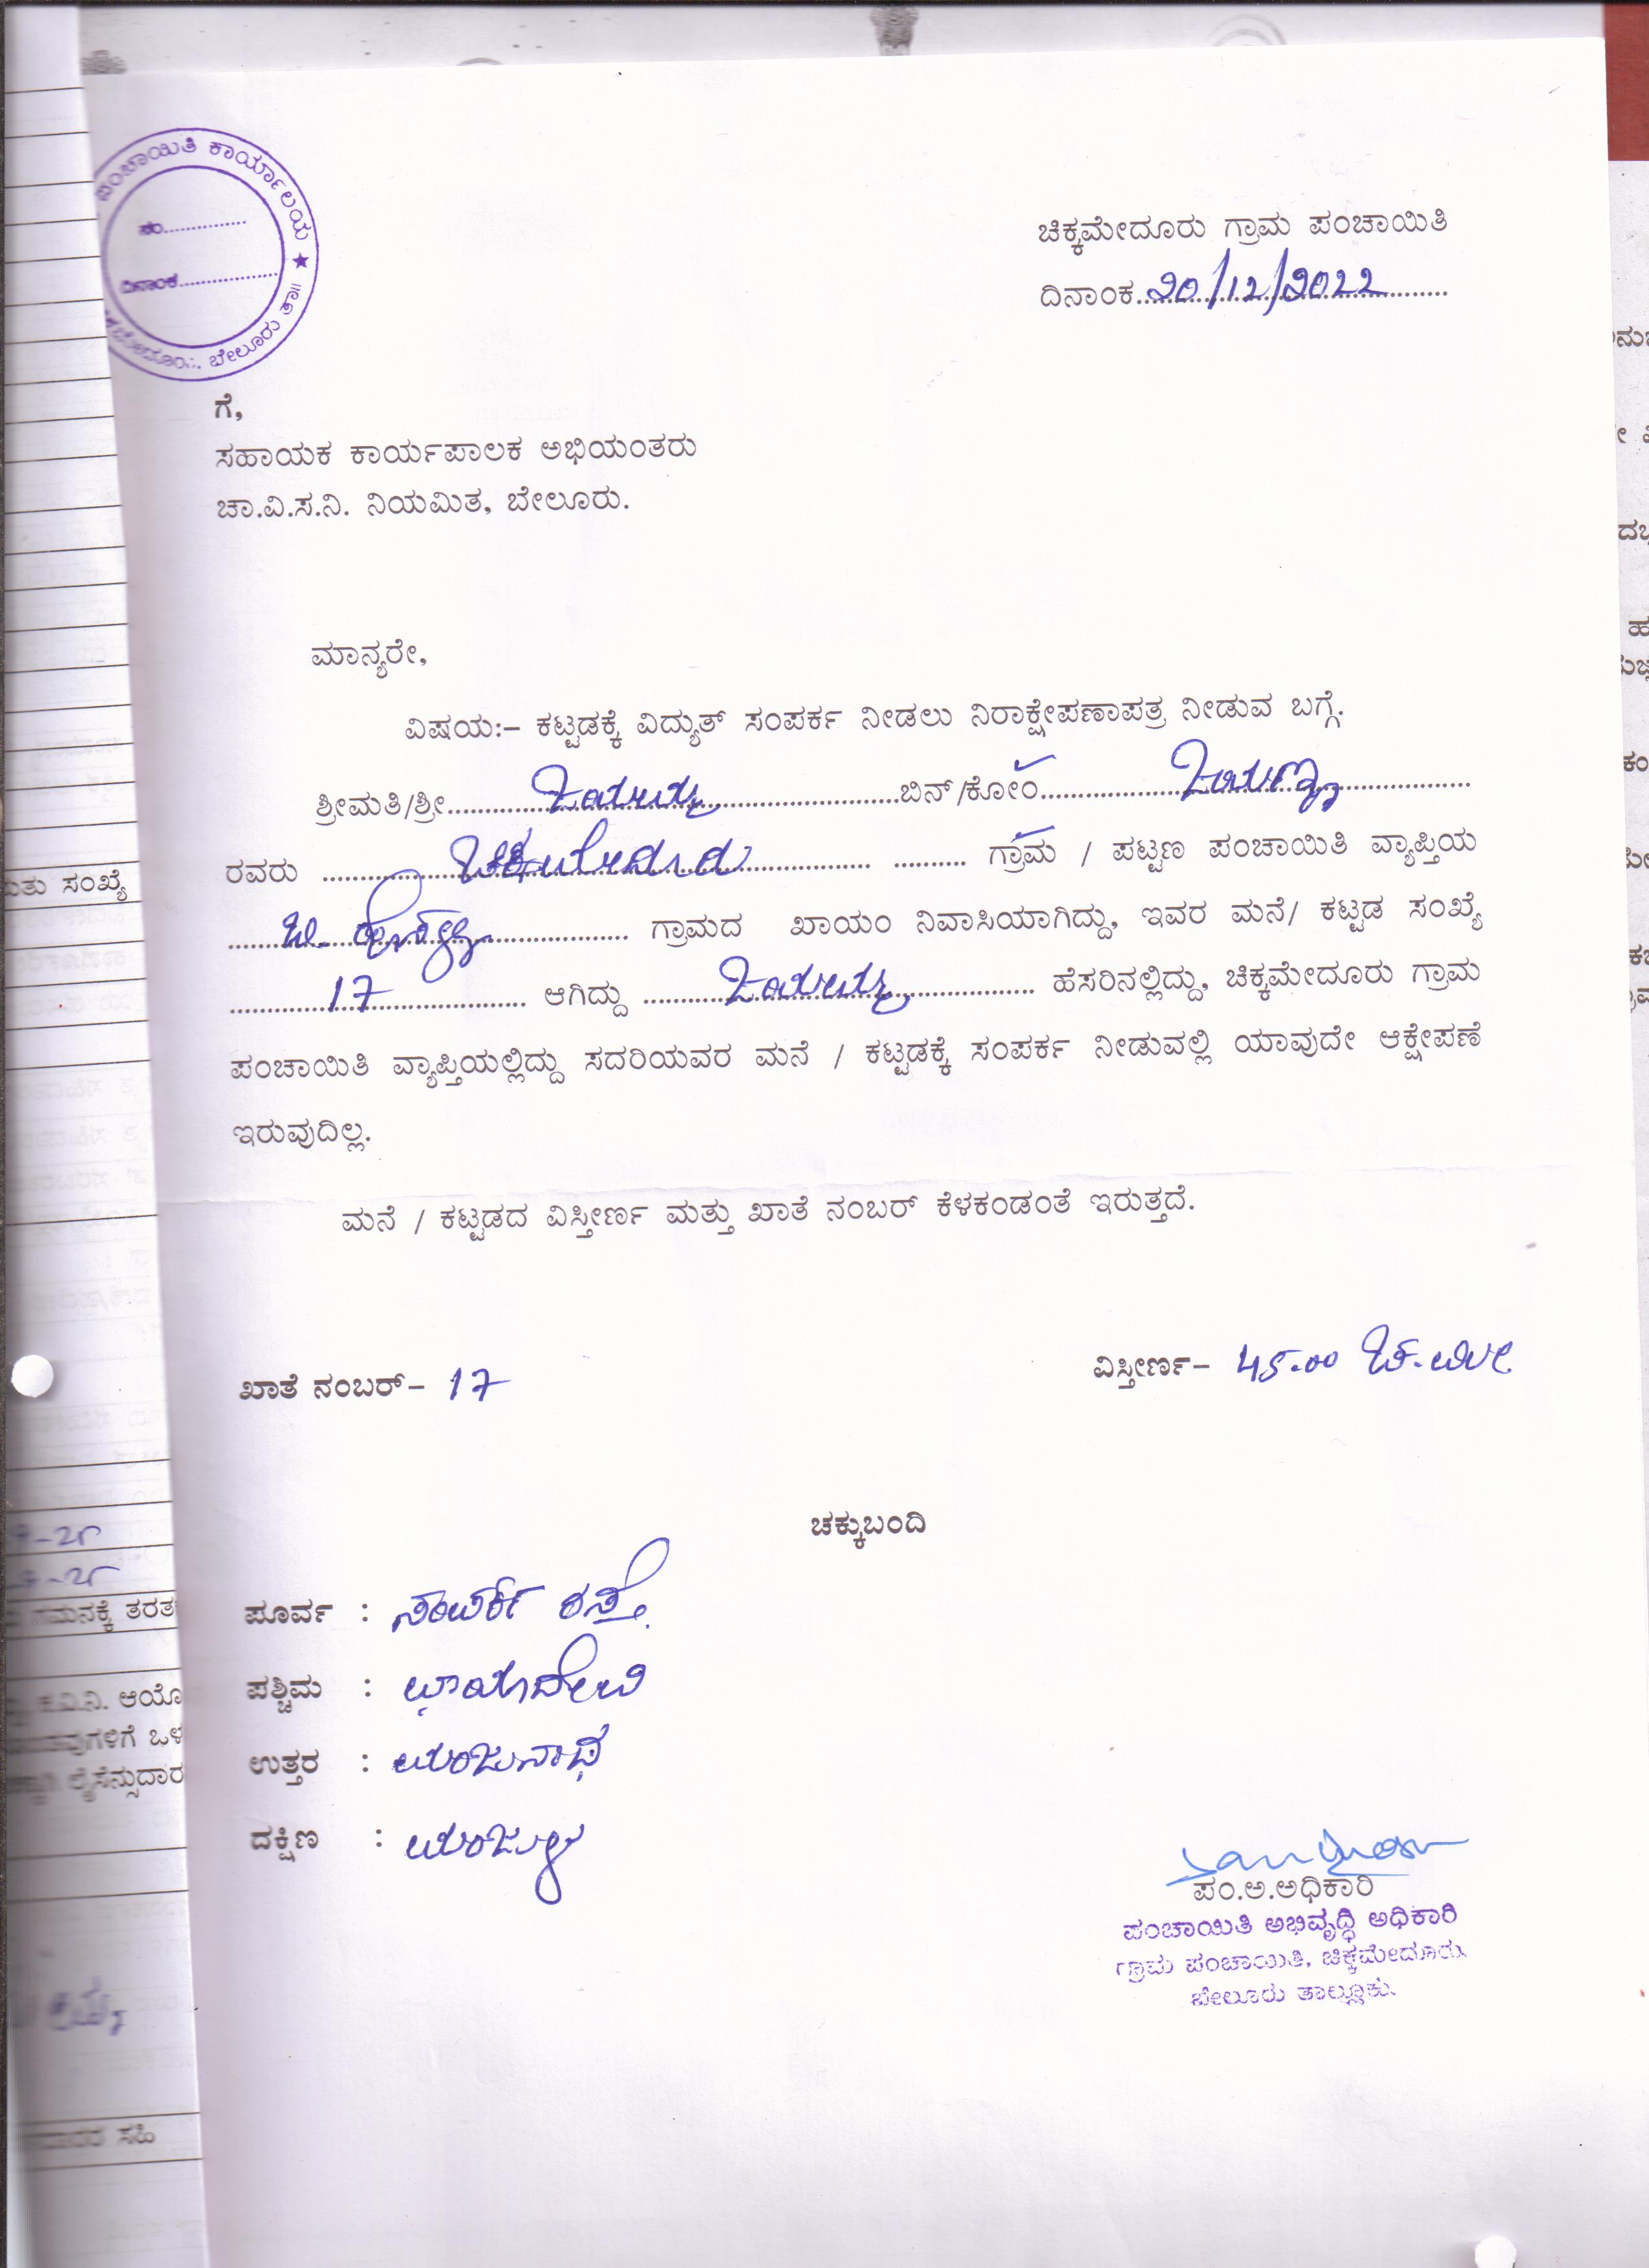 ಪಂಚಾಯಿತಿ ಕಾರ್ಯಾಲಯ ★
ಸಂ..............
ದಿನಾಂಕ.................
ಬೇಲೂರು ತಾ॥
ಚಿಕ್ಕಮೇದೂರು ಗ್ರಾಮ ಪಂಚಾಯಿತಿ
ದಿನಾಂಕ 20/12/2022
ಗೆ,
ಸಹಾಯಕ ಕಾರ್ಯಪಾಲಕ ಅಭಿಯಂತರು
ಚಾ.ವಿ.ಸ.ನಿ. ನಿಯಮಿತ, ಬೇಲೂರು.
ಮಾನ್ಯರೇ,
ವಿಷಯ:– ಕಟ್ಟಡಕ್ಕೆ ವಿದ್ಯುತ್ ಸಂಪರ್ಕ ನೀಡಲು ನಿರಾಕ್ಷೇಪಣಾಪತ್ರ ನೀಡುವ ಬಗ್ಗೆ.
ಶ್ರೀಮತಿ/ಶ್ರೀ ಬಿನ್/ಕೋಂ
ರವರು ಗ್ರಾಮ / ಪಟ್ಟಣ ಪಂಚಾಯಿತಿ ವ್ಯಾಪ್ತಿಯ
ಗ್ರಾಮದ ಖಾಯಂ ನಿವಾಸಿಯಾಗಿದ್ದು, ಇವರ ಮನೆ/ ಕಟ್ಟಡ ಸಂಖ್ಯೆ
17 ಆಗಿದ್ದು ಹೆಸರಿನಲ್ಲಿದ್ದು, ಚಿಕ್ಕಮೇದೂರು ಗ್ರಾಮ
ಪಂಚಾಯಿತಿ ವ್ಯಾಪ್ತಿಯಲ್ಲಿದ್ದು ಸದರಿಯವರ ಮನೆ / ಕಟ್ಟಡಕ್ಕೆ ಸಂಪರ್ಕ ನೀಡುವಲ್ಲಿ ಯಾವುದೇ ಆಕ್ಷೇಪಣೆ
ಇರುವುದಿಲ್ಲ.
ಮನೆ / ಕಟ್ಟಡದ ವಿಸ್ತೀರ್ಣ ಮತ್ತು ಖಾತೆ ನಂಬರ್ ಕೆಳಕಂಡಂತೆ ಇರುತ್ತದೆ.
ಖಾತೆ ನಂಬರ್– 17
ವಿಸ್ತೀರ್ಣ– 45.00 ಚ.ಮೀ
ಚಕ್ಕುಬಂದಿ
ಪೂರ್ವ : ಸಂಪರ್ಕ ರಸ್ತೆ.
ಪಶ್ಚಿಮ : ಛಾಯಾದೇವಿ
ಉತ್ತರ : ಮಂಜುನಾಥ
ದಕ್ಷಿಣ : ಮಂಜುಳ
ಪಂ.ಅ.ಅಧಿಕಾರಿ
ಪಂಚಾಯಿತಿ ಅಭಿವೃದ್ಧಿ ಅಧಿಕಾರಿ
ಗ್ರಾಮ ಪಂಚಾಯಿತಿ, ಚಿಕ್ಕಮೇದೂರು.
ಬೇಲೂರು ತಾಲ್ಲೂಕು.